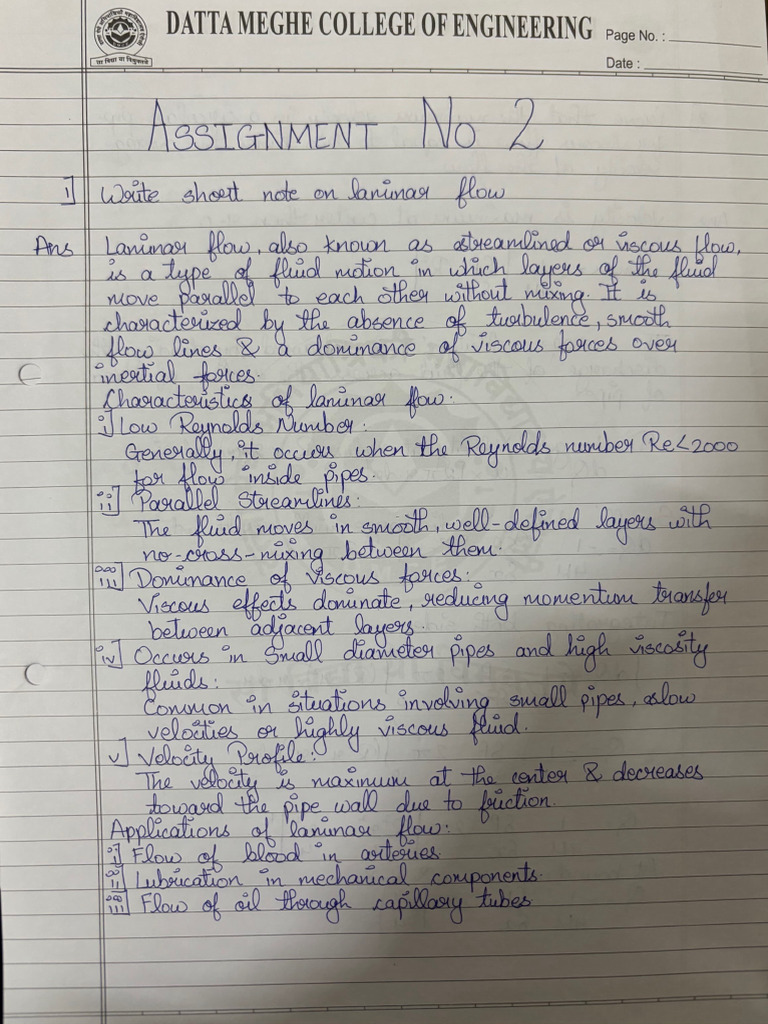 DATTA MEGHE COLLEGE OF ENGINEERING
Page No. :
Date :
ASSIGNMENT No 2
i] Write short note on laminar flow
Ans Laminar flow, also known as streamlined or viscous flow,
is a type of fluid motion in which layers of the fluid
move parallel to each other without mixing. It is
characterized by the absence of turbulence, smooth
flow lines & a dominance of viscous forces over
inertial forces.
Characteristics of laminar flow:
i] Low Reynolds Number:
Generally, it occurs when the Reynolds number Re<2000
for flow inside pipes.
ii] Parallel Streamlines:
The fluid moves in smooth, well-defined layers with
no-cross-mixing between them.
iii] Dominance of Viscous forces:
Viscous effects dominate, reducing momentum transfer
between adjacent layers.
iv] Occurs in Small diameter pipes and high viscosity
fluids:
Common in situations involving small pipes, slow
velocities or highly viscous fluid.
v] Velocity Profile:
The velocity is maximum at the center & decreases
toward the pipe wall due to friction.
Applications of laminar flow:
i] Flow of blood in arteries.
ii] Lubrication in mechanical components.
iii] Flow of oil through capillary tubes